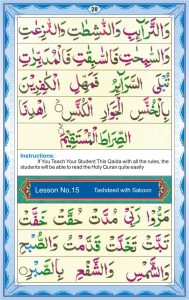 28
وَالتَّرَآئِبِ وَالنّٰشِطٰتِ وَالنّٰزِعٰتِ
وَالسّٰبِحٰتِ فَالسّٰبِقٰتِ فَالْمُدَبِّرٰتِ
تُبْلَى السَّرَآئِرُ فَمَهِّلِ الْكٰفِرِيْنَ
بِالْخُنَّسِ الْجَوَارِ الْكُنَّسِ اِهْدِنَا
الصِّرَاطَ الْمُسْتَقِيْمَ
Instructions:
If You Teach Your Student This Qaida with all the rules, the
students will be able to read the Holy Quran quite easily
Lesson No.15 Tashdeed with Sakoon
مَرُّوْا رَبِّىْ مُدَّتْ حُقَّتْ خَفَّتْ
تَبَّتْ تَخَلَّتْ قَدَّمَتْ وَالصُّبْحِ
وَالشَّمْسِ وَالشَّفْعِ بِالصَّبْرِ